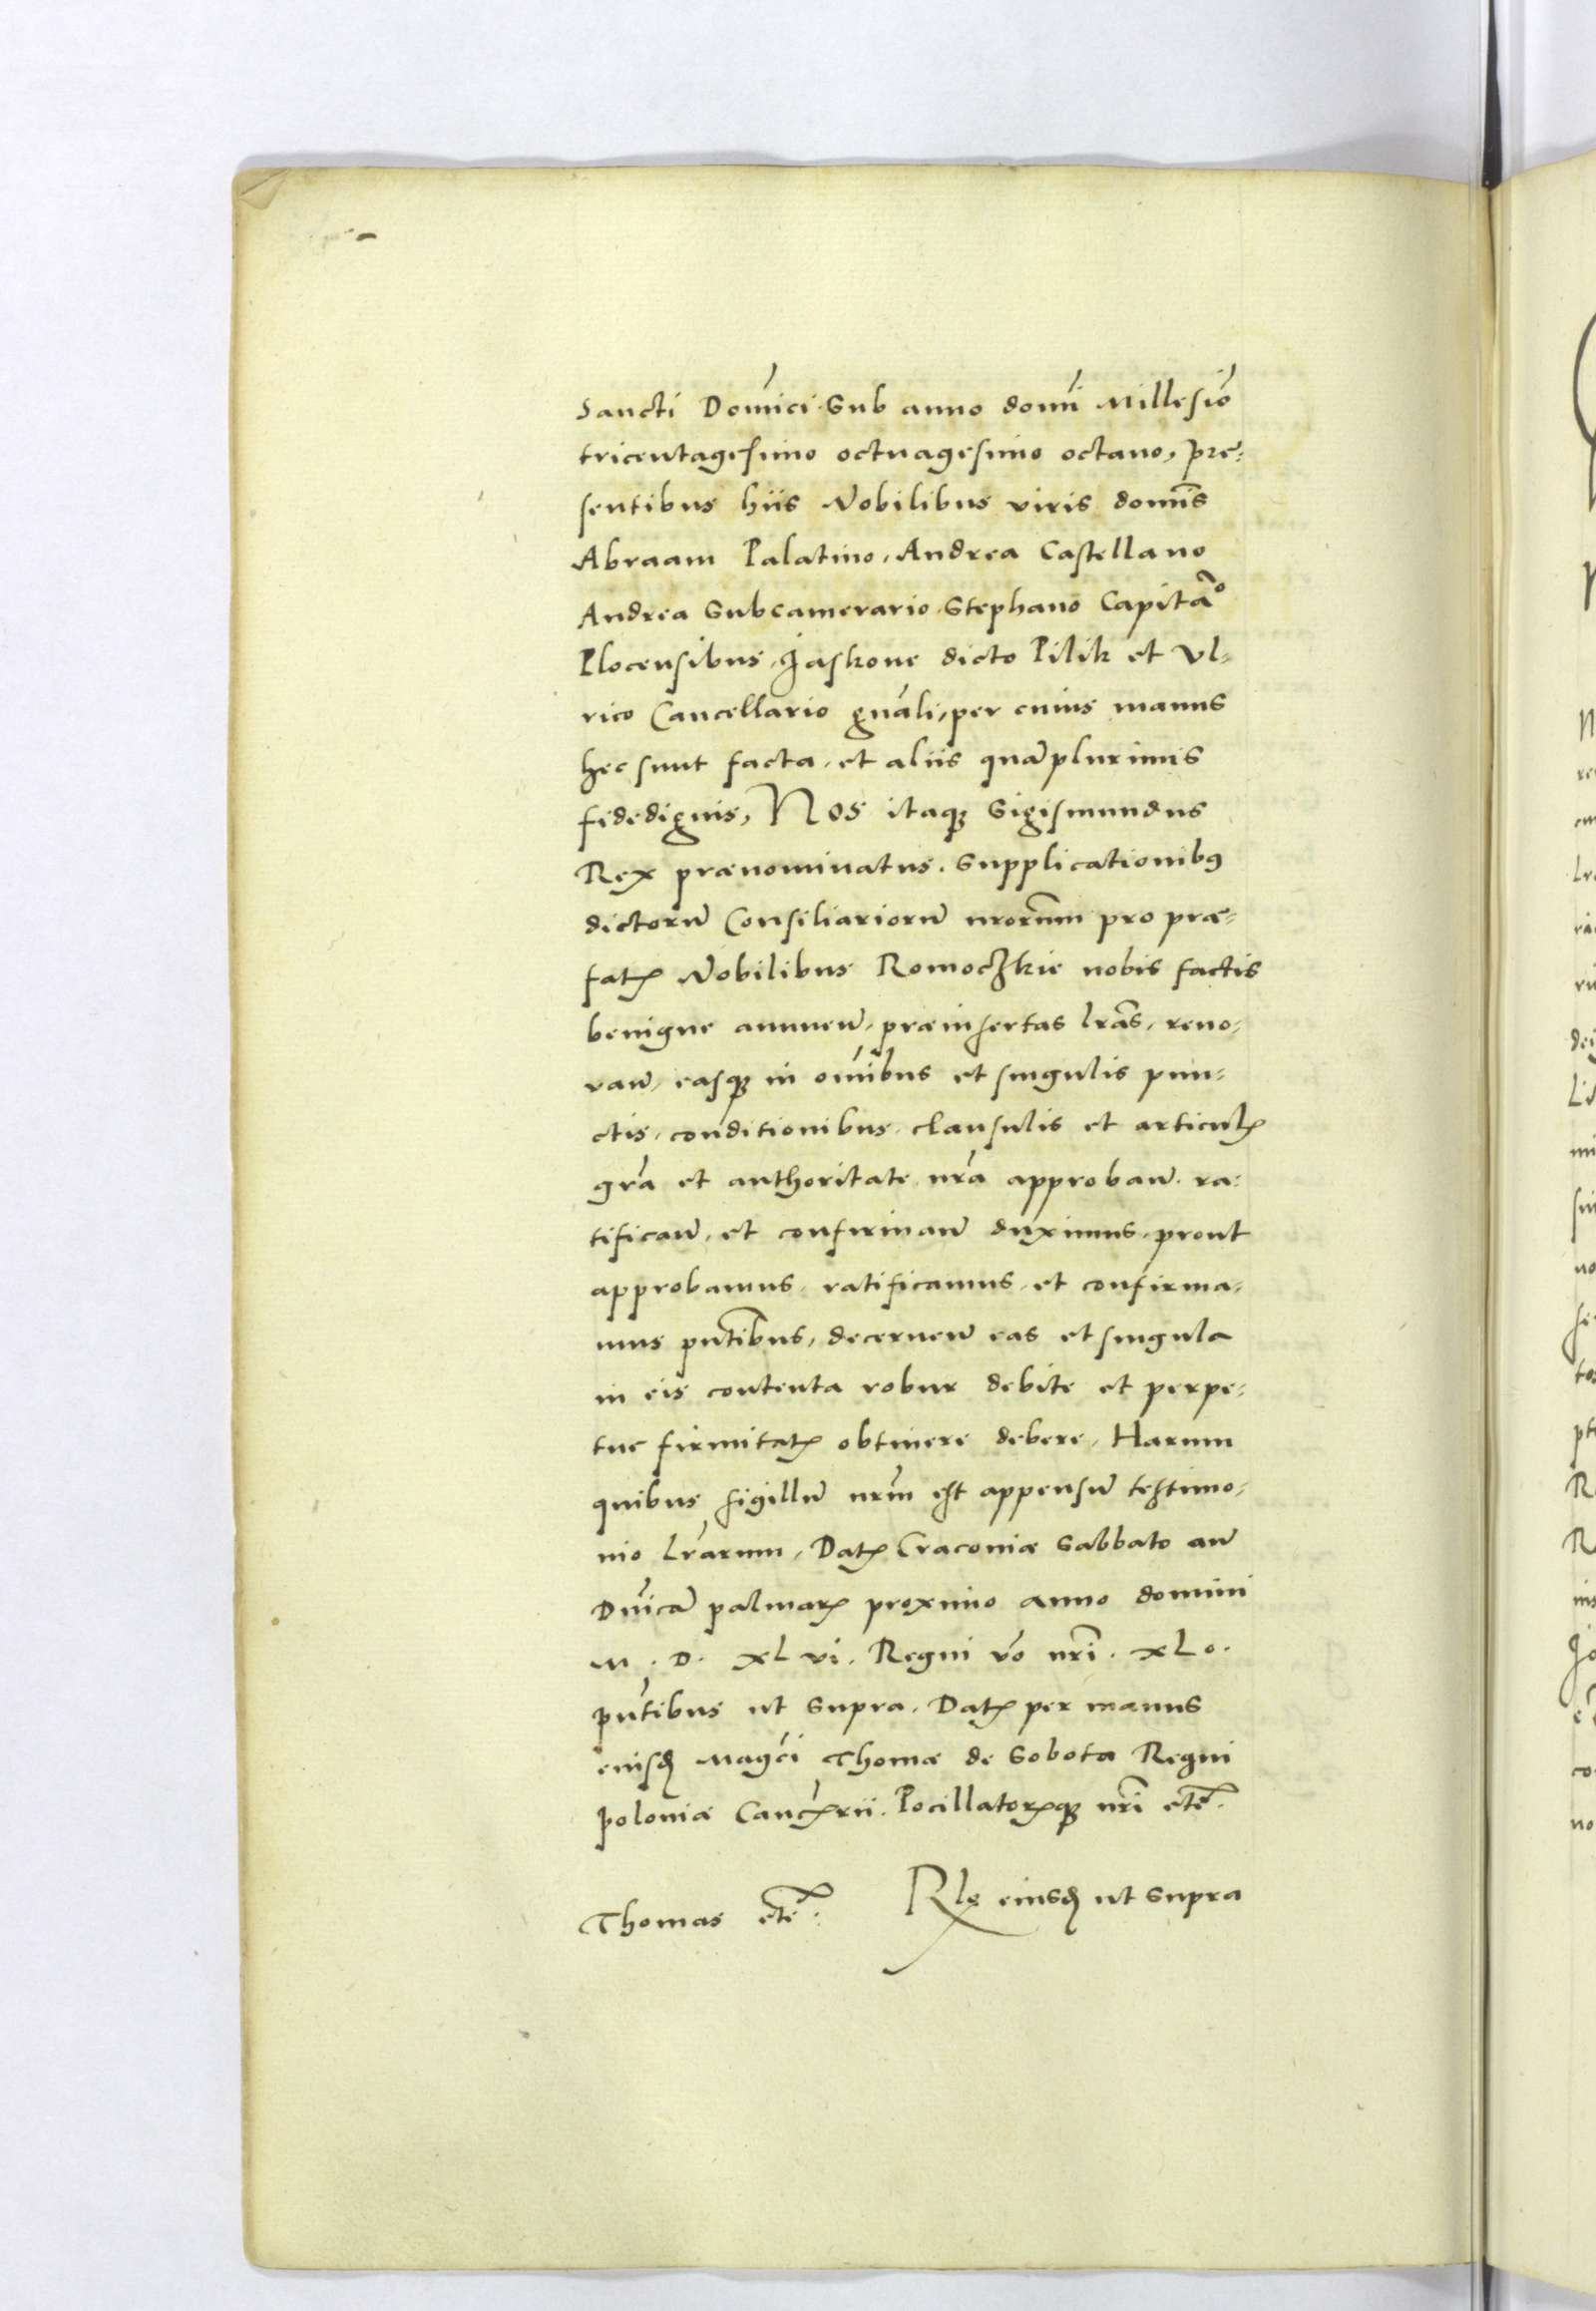 Sancti Domĩci Sub anno domĩ Millesiõ
tricentagesimo octuagesimo octauo, pre-
sentibus hiis Nobilibus viris domĩs
Abraam Palatino, Andrea Castellano
Andrea Subcamerario Stephano Capitãᵒ
Plocensibus, Jaskone dicto Pilik et Vl-
rico Cancellario gnãli, per cuius manus
hec sunt facta, et aliis quã plurimis
fidedignis, Nos itaqꝫ Sigismundus
Rex prænominatus. Supplicationibꝰ
dictorũ Consiliariorũ nr̃orum pro præ-
fatꝭ Nobilibus Romoczkie nobis factis
benigne annueñ, præinsertas lr̃as, reno-
vañ, easqꝫ in om̃ibus et singulis pun-
ctis, conditionibus, clausulis et articulꝭ
gr̃a et authoritate nr̃a approbañ. ra-
tificañ, et confirmañ duximus, prout
approbamus, ratificamus, et confirma-
mus pñtibus, decerneñ eas et singula
in eis contenta robur debite et perpe-
tue firmitatꝭ obtinere debere, Harum
quibus sigillũ nr̃m est appensũ testimo-
nio lr̃arum, Datꝭ Cracoviæ Sabbato añ
Dñicã palmarꝭ proximo anno domini
M. D. XL vi. Regni v̄o nr̃i. XLo.
pñtibus ut supra, Datꝭ per manus
eiusdꝫ Mag̃ci Thomæ de Sobota Regni
Poloniæ Canc̃rii. Pocillatorꝭqꝫ nr̃i etc̃.
Thomas etc̃. Rlo eiusdꝫ ut supra